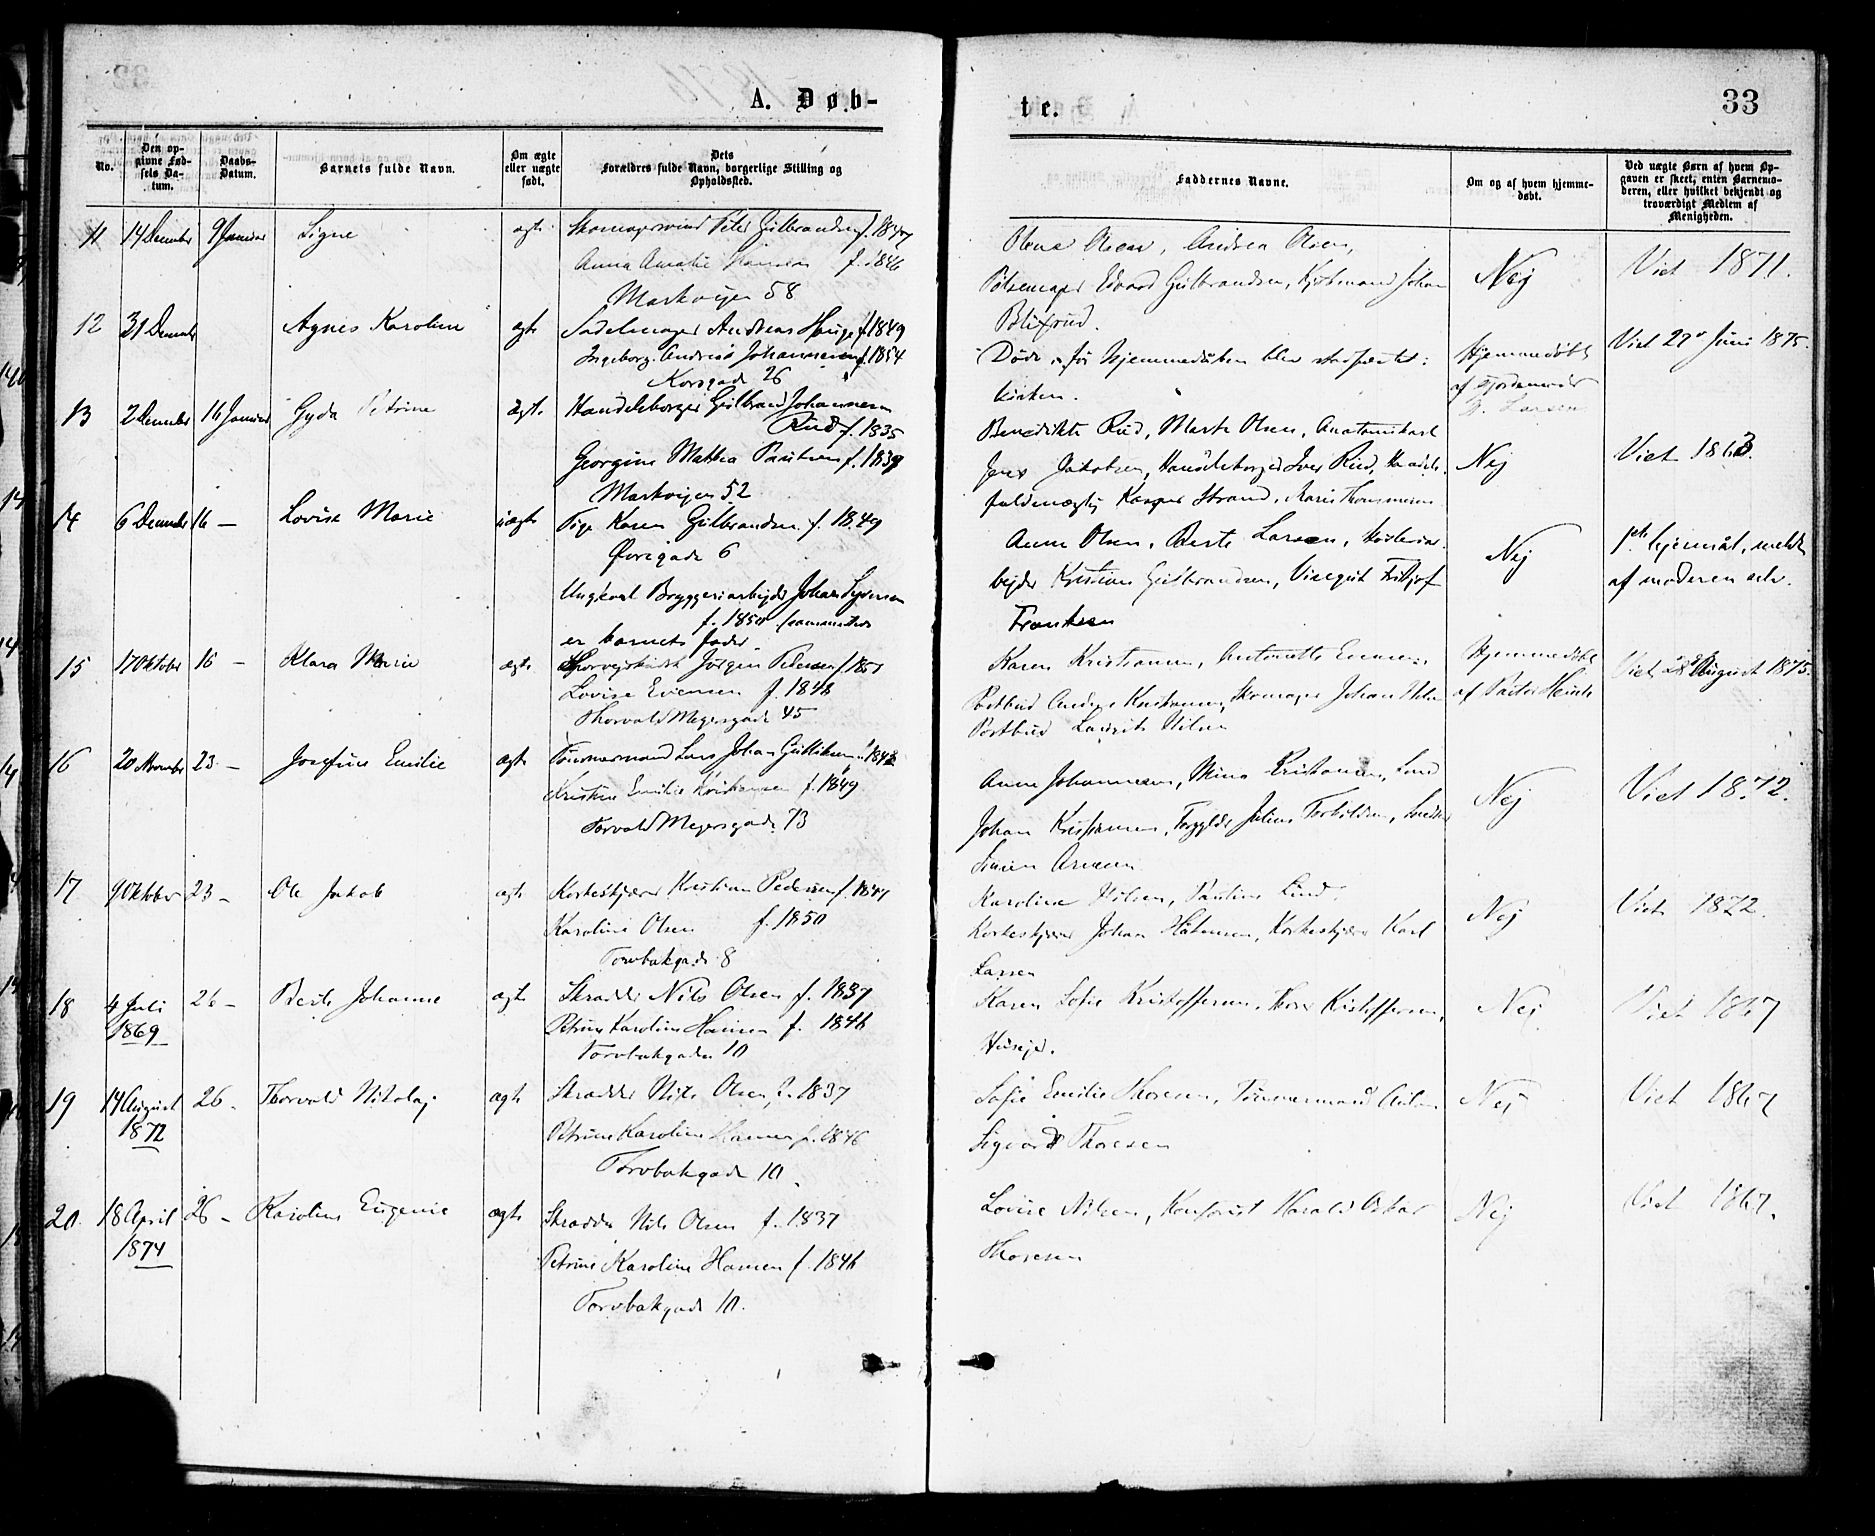 A. Døb-
te.
33
No.
Den opgivne Fødsels Datum.
Daabs-Datum.
Barnets fulde Navn.
Om ægte eller uægte født.
Dets Forældres fulde Navn, borgerlige Stilling og Opholdssted.
Faddernes Navne.
Om og af hvem hjemmedøbt.
Ved uægte Børn af hvem Opgaven er skeet, enten Barnemoderen, eller hvilket bekjendt og troværdigt Medlem af Menigheden.
11 14 December 9 Januar Signe ægte Peter Gulbrandsen f. 1847
Anna Amalie Hansen f. 1846
Markveien 58
Olsen, Andrea Olsen,
Pølsemager Edvard Gulbrandsen, Johan
Blixrud.
Nej
Viet 1871.
12 31 December Agnes Karoline ægte Sadelmager Andreas Hauge f. 1849
Ingeborg Andrea Johannesen f. 1854
Korsgade 26
Døde før Hjemmedåben blev
kirken.
Hjemmedøbt
af Jordemoder
Larsen
Viet 29 Juni 1875.
13 2 December 16 Januar Gyda Petrine ægte Handelsborger Gulbrand Johannesen
Rud f. 1835
Georgine Mathea Paulsen f. 1839
Markveien 52
Benedikte Rud, Marte Olsen,
Jens Jakobsen, Handelsborger Iver Rud, Handels-
fuldmægtig Kasper Strand,
Nej
Viet 1863.
14 6 December 16 — Lovise Marie uægte Pige Karen Gulbrandsen f. 1849
Øvregade 6
Ungkarl Bryggeriarbejder Johan Syversen
f. 1850
er barnets fader.
Anne Olsen, Berte Larsen,
Kristian Gulbrandsen, Fritjof
Frantsen
Nej
1ste lejermål, meldt
af moderen selv.
15 17 Oktober 16 — Klara Marie ægte Jørgen Pedersen f. 1851
Lovise Evensen f. 1848
Thorvald Meyersgade 45
Karen Kristiansen, Antonette Evensen
Postbud Anders Kristiansen, Skomager Johan
Postbud Lauritz Nilsen
Hjemmedøbt
af Pastor
Viet 28 August 1875.
16 20 November 23 — Josefine Emilie ægte Tømmermand Lars Johan Gulliksen f. 1848
Kristine Emilie Kristiansen f. 1849
Torvald Meyersgade 73
Anne Johannesen, Mina Kristiansen,
Johan Kristiansen, Julius Torkildsen,
Nej
Viet 1872.
17 9 Oktober 23 — Ole Jakob ægte Korkeskjærer Kristian Pedersen f. 1847
Karoline Olsen f. 1850
Torvbakgade 8
Karoline Nilsen, Pauline Lund,
Korkeskjærer Johan Håkensen, Korkeskjærer Karl
Larsen
Nej
Viet 1872.
18 4 Juli 1869 26 — Berte Johanne ægte Skrædder Nils Olsen f. 1837
Petrine Karoline Hansen f. 1846
Torvbakgaden 10
Karen Sofie Kristoffersen, Thore Kristoffersen,
Husejer.
Nej
Viet 1867
19 14 August 1872 26 — Thorvald Nikolaj ægte Skrædder Nils Olsen f. 1837
Petrine Karoline Hansen f. 1846
Torvbakgade 10.
Sofie Emilie Thoresen, Tømmermand Anton
Sigvard Thoresen
Nej
Viet 1867
20. 18 April 1874 26 — Karoline Eugenie ægte Skrædder Nils Olsen f. 1837
Petrine Karoline Hansen f. 1846
Torvbakgade 10.
Lovise Nilsen, Harald Oskar
Thoresen
Nej
Viet 1867.